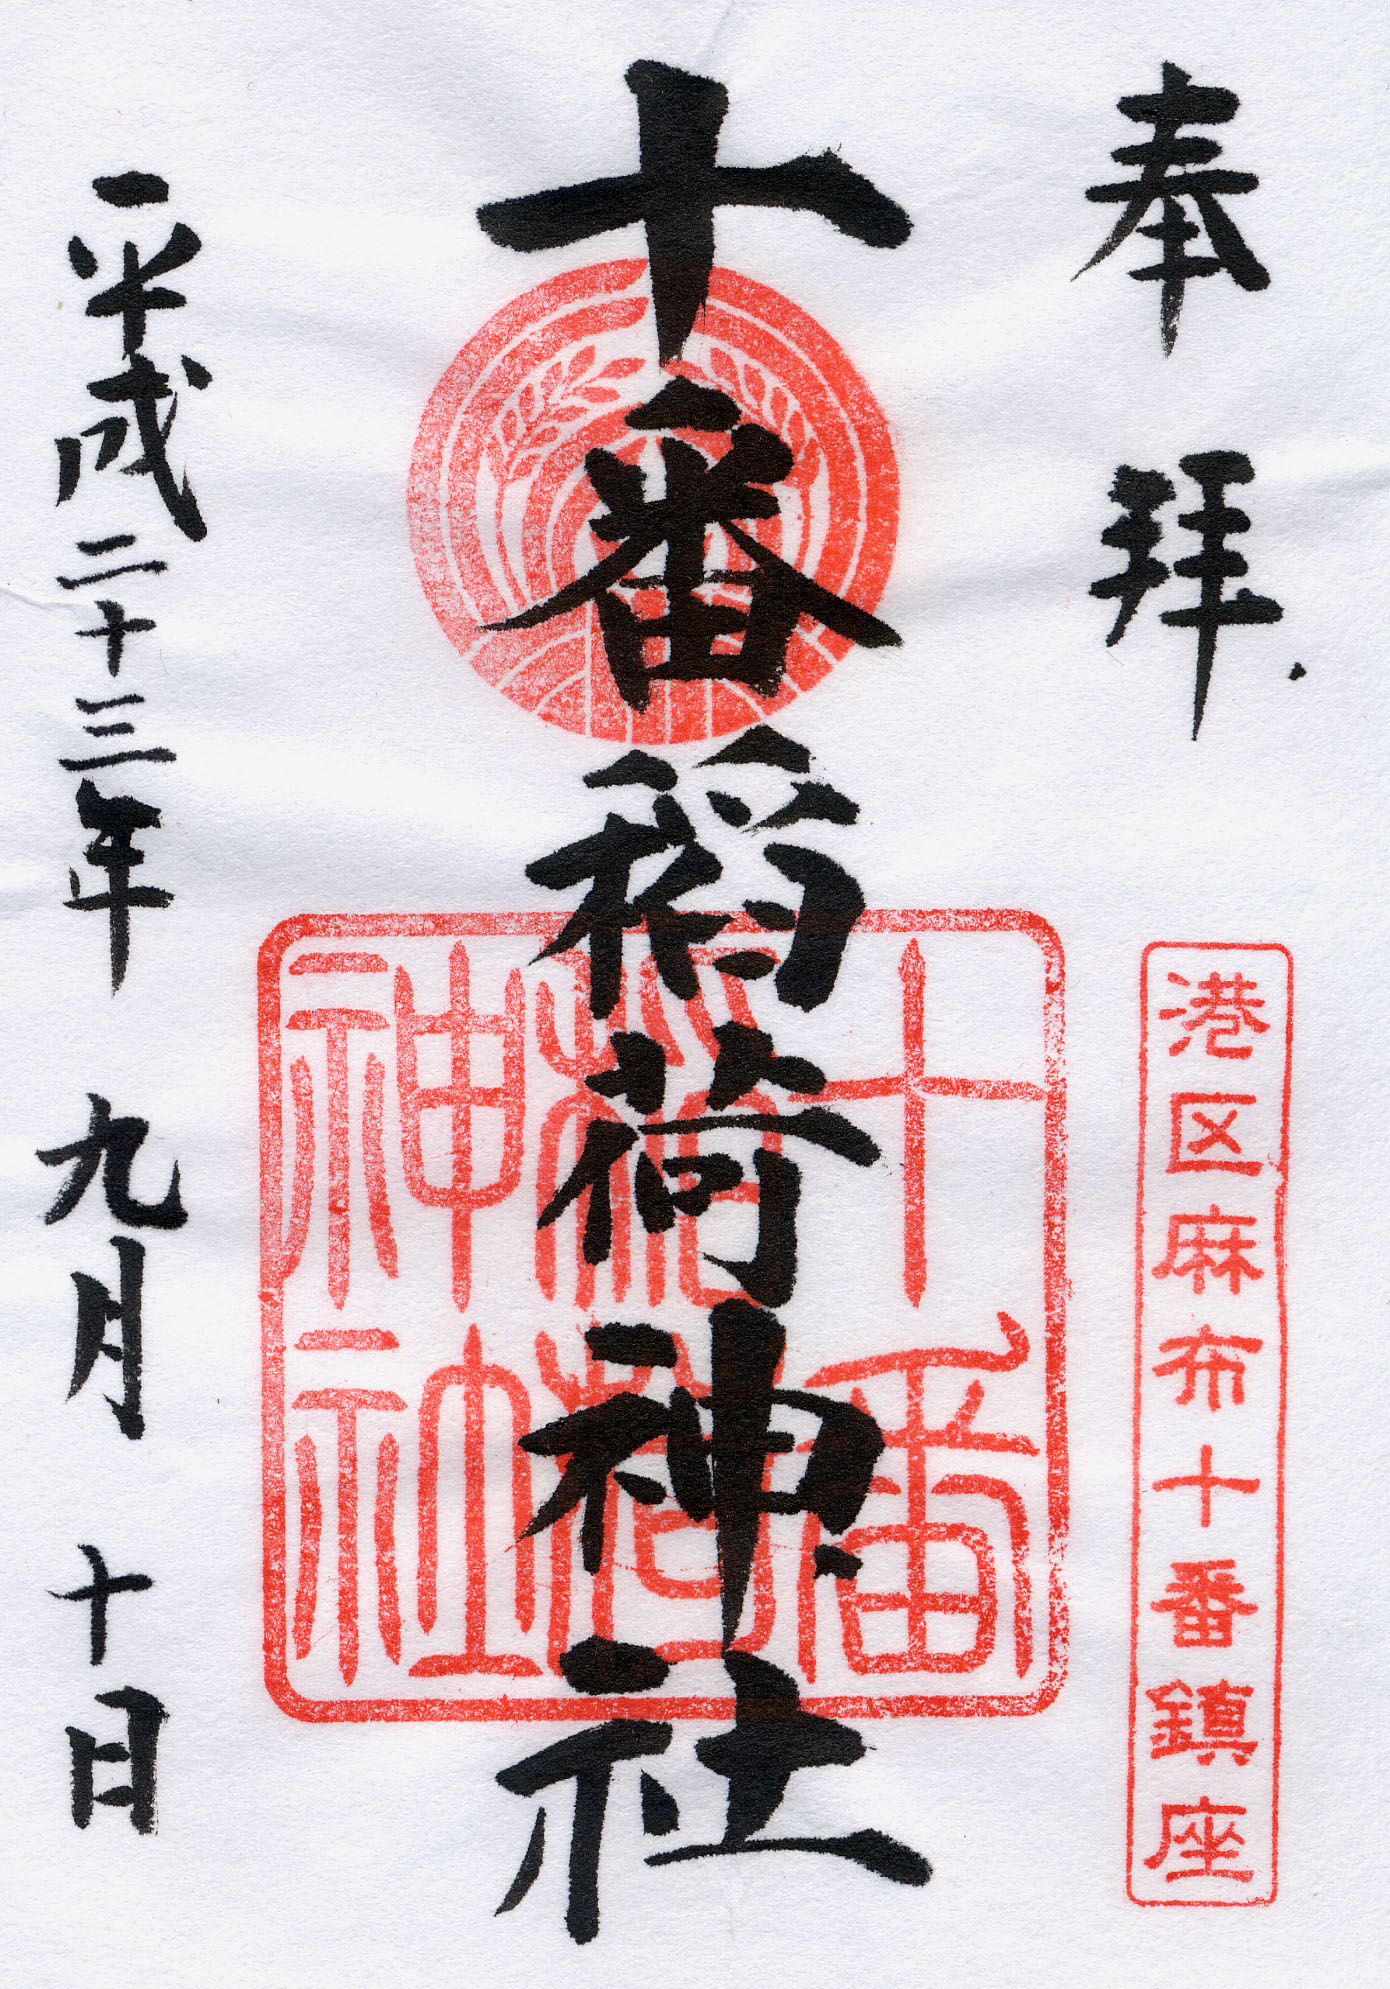 奉拝
港区麻布十番鎮座
十番稲荷神社
十番
稲荷
神社
平成二十三年九月十日